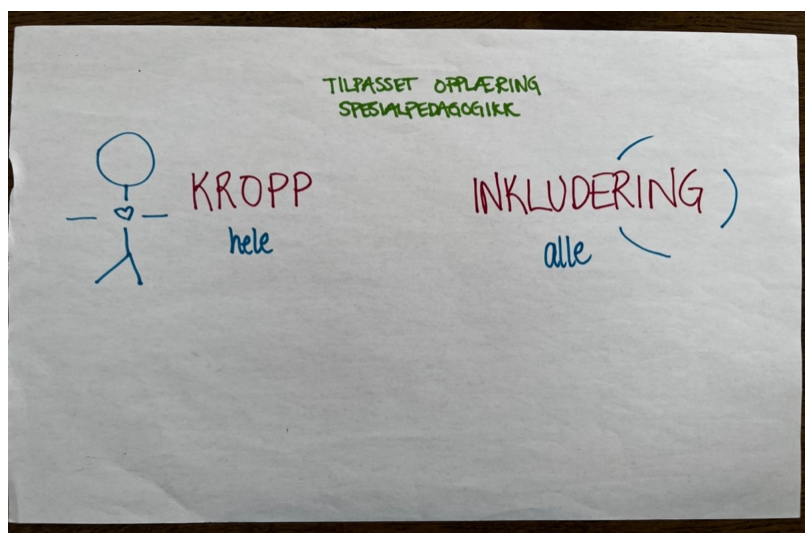 TILPASSET OPPLÆRING
SPESIALPEDAGOGIKK
KROPP
hele
INKLUDERING
alle